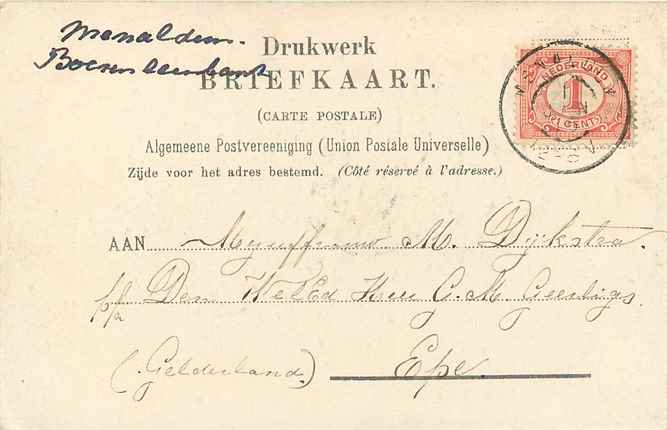 Menaldum.
Boerenleenbank
Drukwerk
BRIEFKAART.
(CARTE POSTALE)
Algemeene Postvereeniging (Union Postale Universelle)
Zijde voor het adres bestemd. (Côté réservé à l'adresse.)
NEDERLAND
1
CENT
AAN Mejuffrouw M. Dijkstra.
p/a Den WelEd Heer G. M. Geerligs.
(Gelderland) Epe.